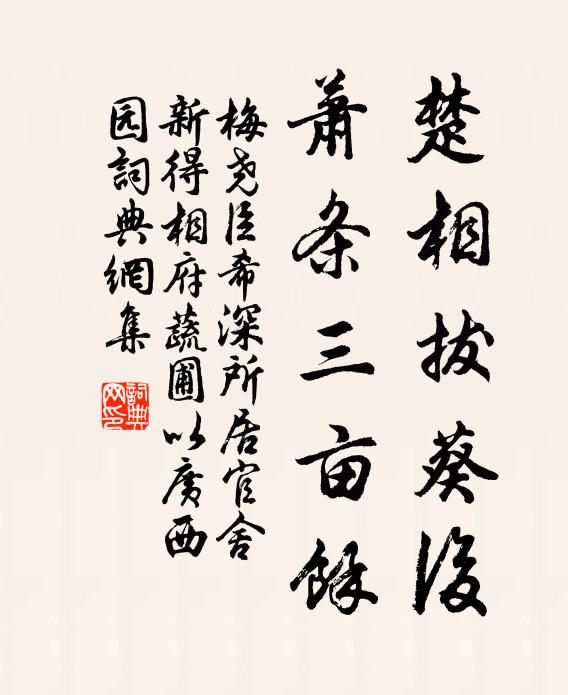 楚相拔葵後
蕭条三亩餘
梅尧臣希深所居官舍
新得相府蔬圃以廣西
园詞典網集
詞典网印